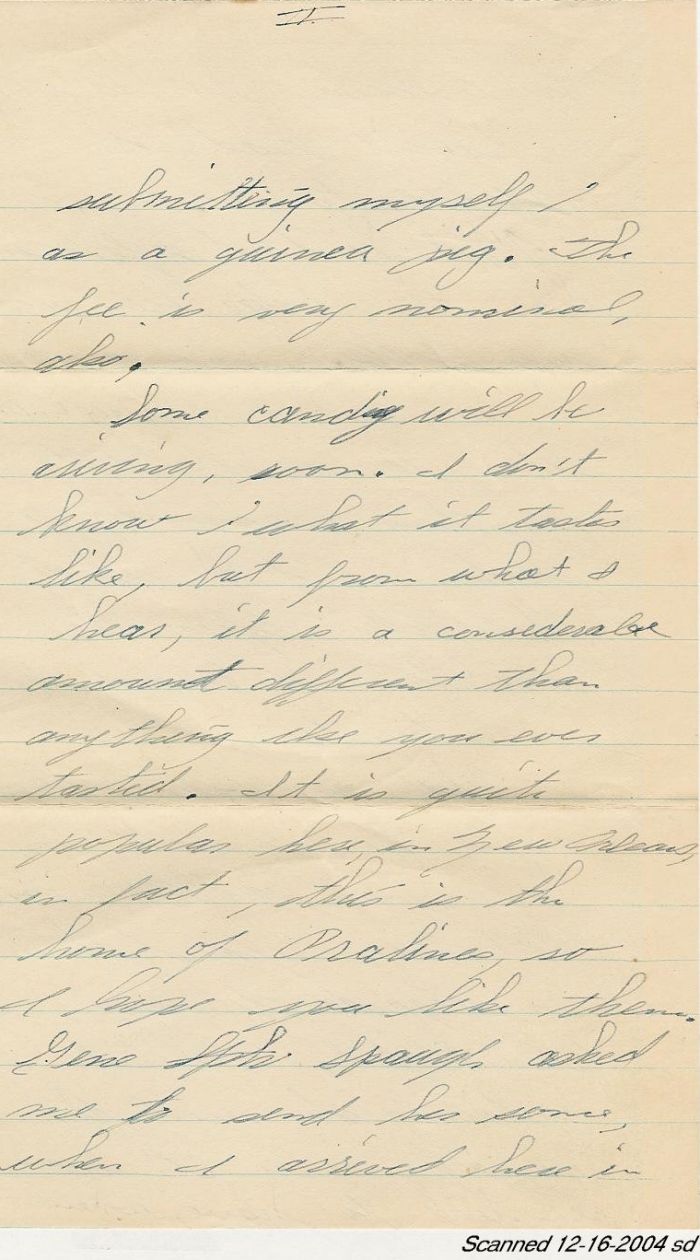 II.
submitting myself
as a guinea pig. The
fee is very nominal,
also.
Some candy will be
arriving, soon. I don't
know what it tastes
like, but from what I
hear, it is a considerable
amount different than
anything else you ever
tasted. It is quite
popular here, in New Orleans,
in fact, this is the
home of Pralines, so
I hope you like them.
Gene Spaugh asked
me to send her some,
when I arrived here in
Scanned 12-16-2004 sd